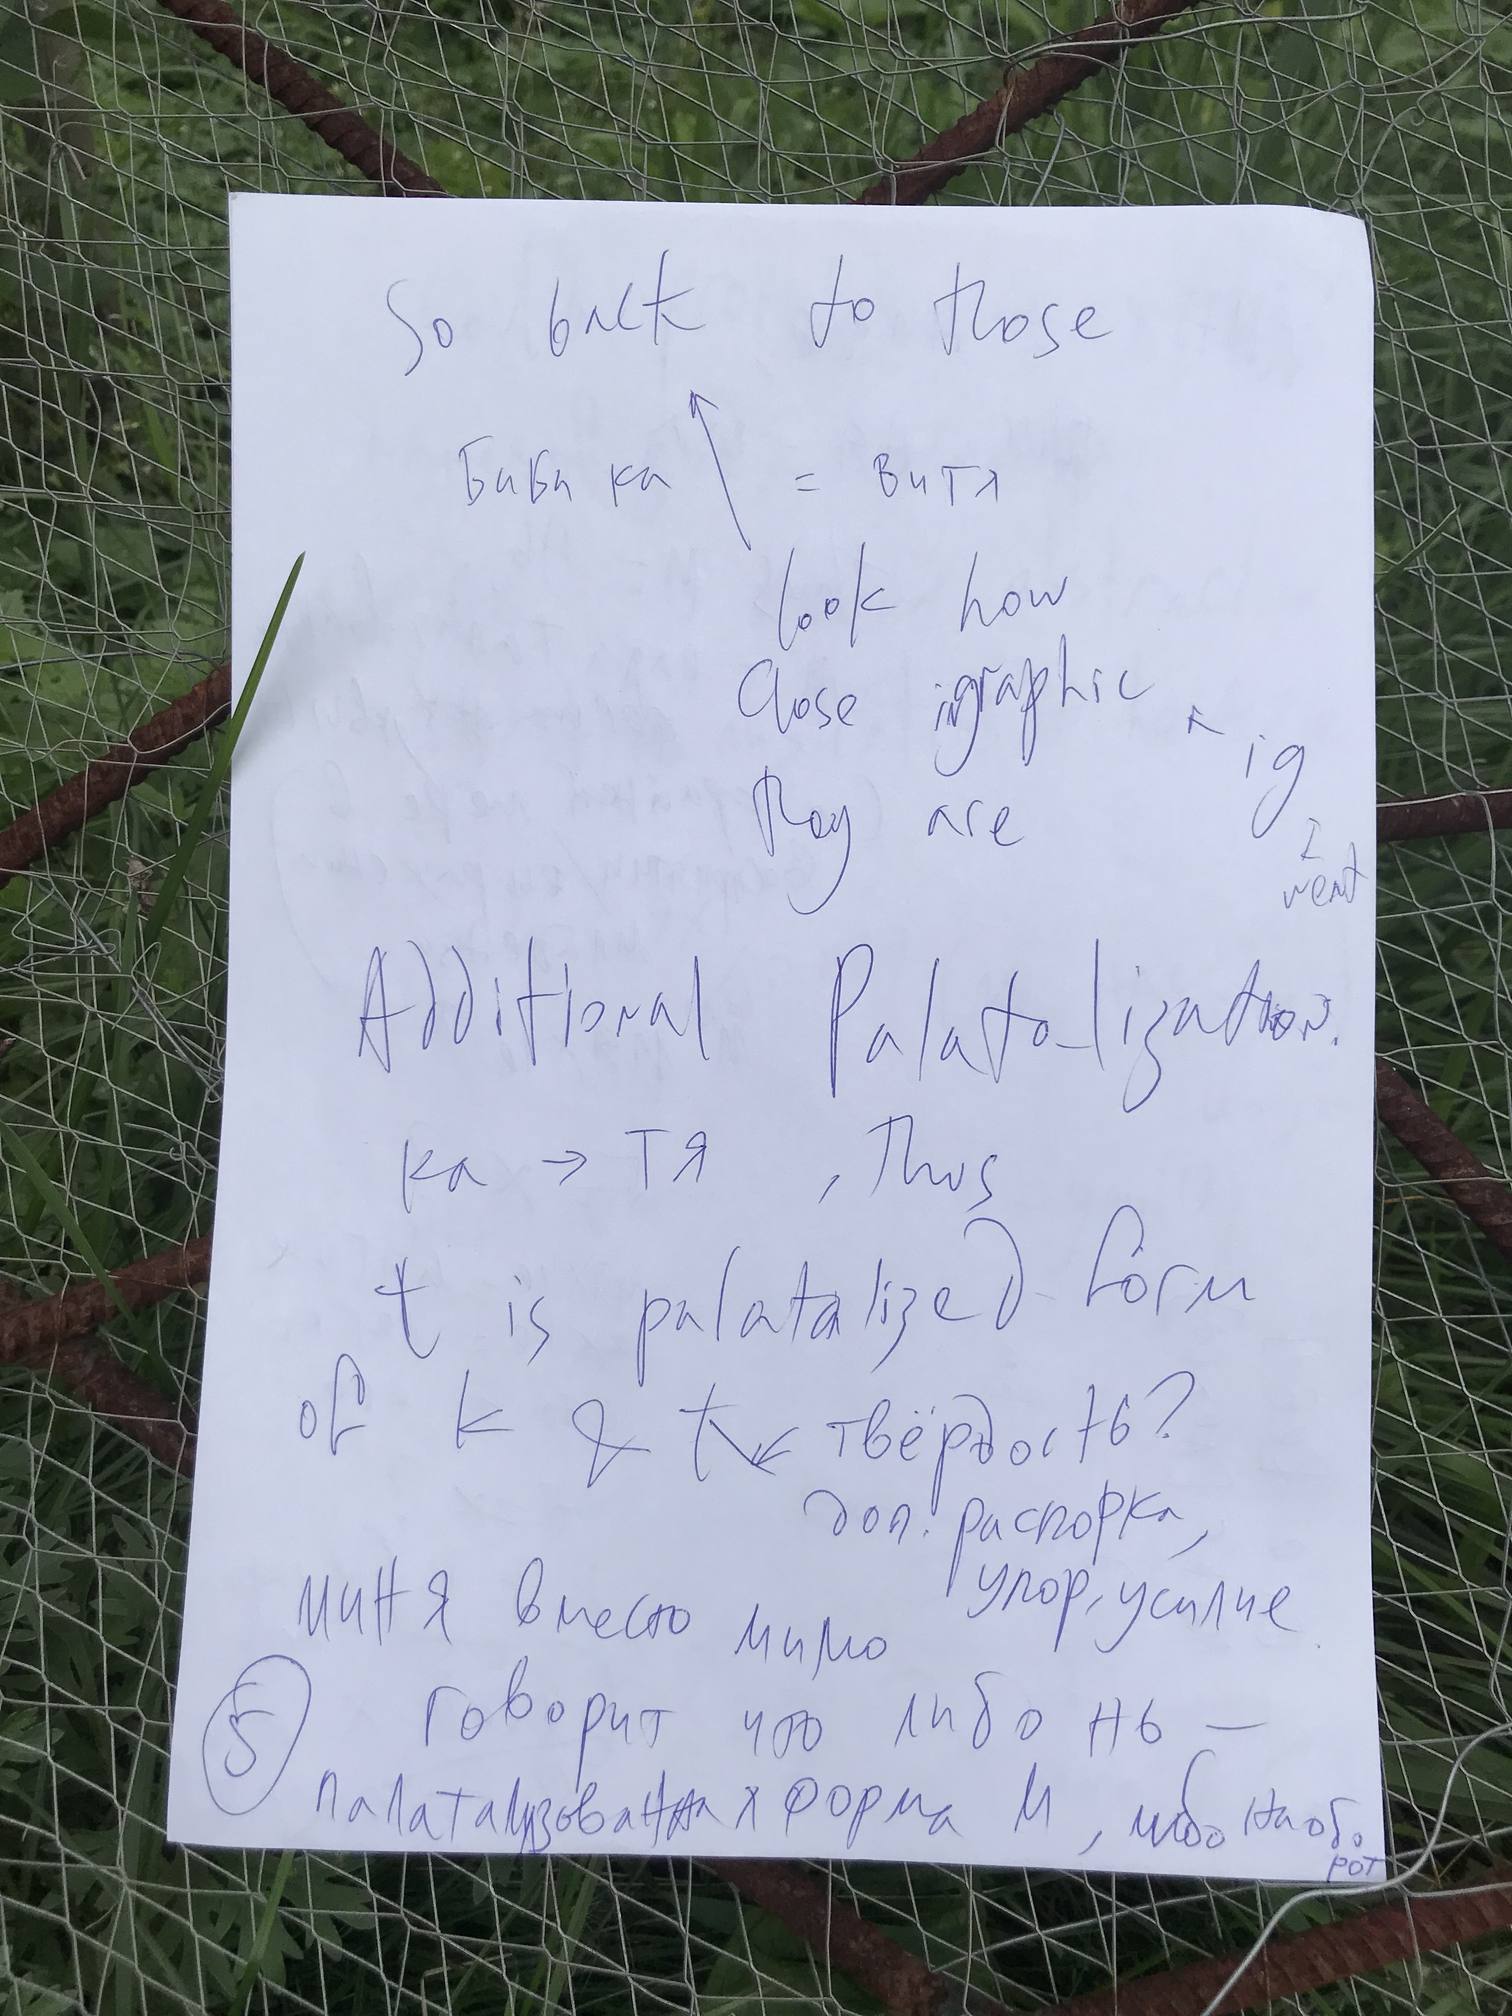 So back to those
Биби ка = витя
look how
close igraphic
ig
they are
I
ment
Additional Palatalization.
ка → тя , thus
t is palatalized form
of k & t ← твёрдость?
доп. распорка,
упор, усилие
миня вместо мимо
говорит что либо нь —
палатализованная форма м, либо наоборот
5